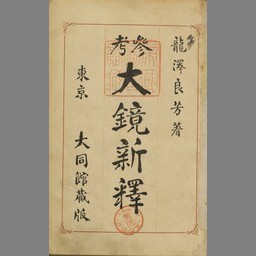 龍澤良芳著
参考
大鏡新釋
東京
大同館藏版